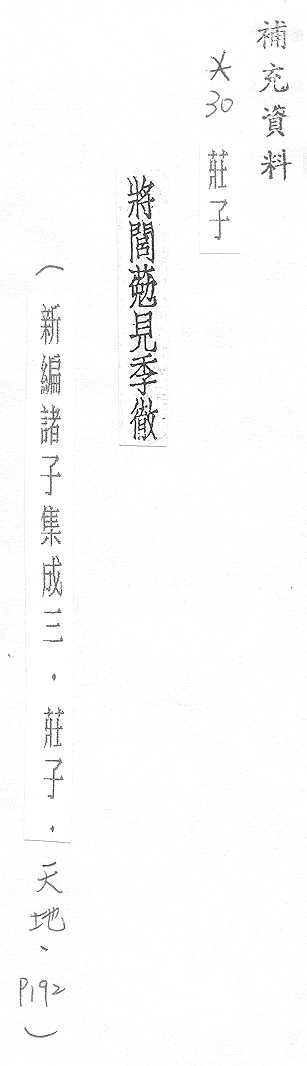 補充資料
*30 莊子
將閭葂見季徹
（新編諸子集成三．莊子．天地、P192）